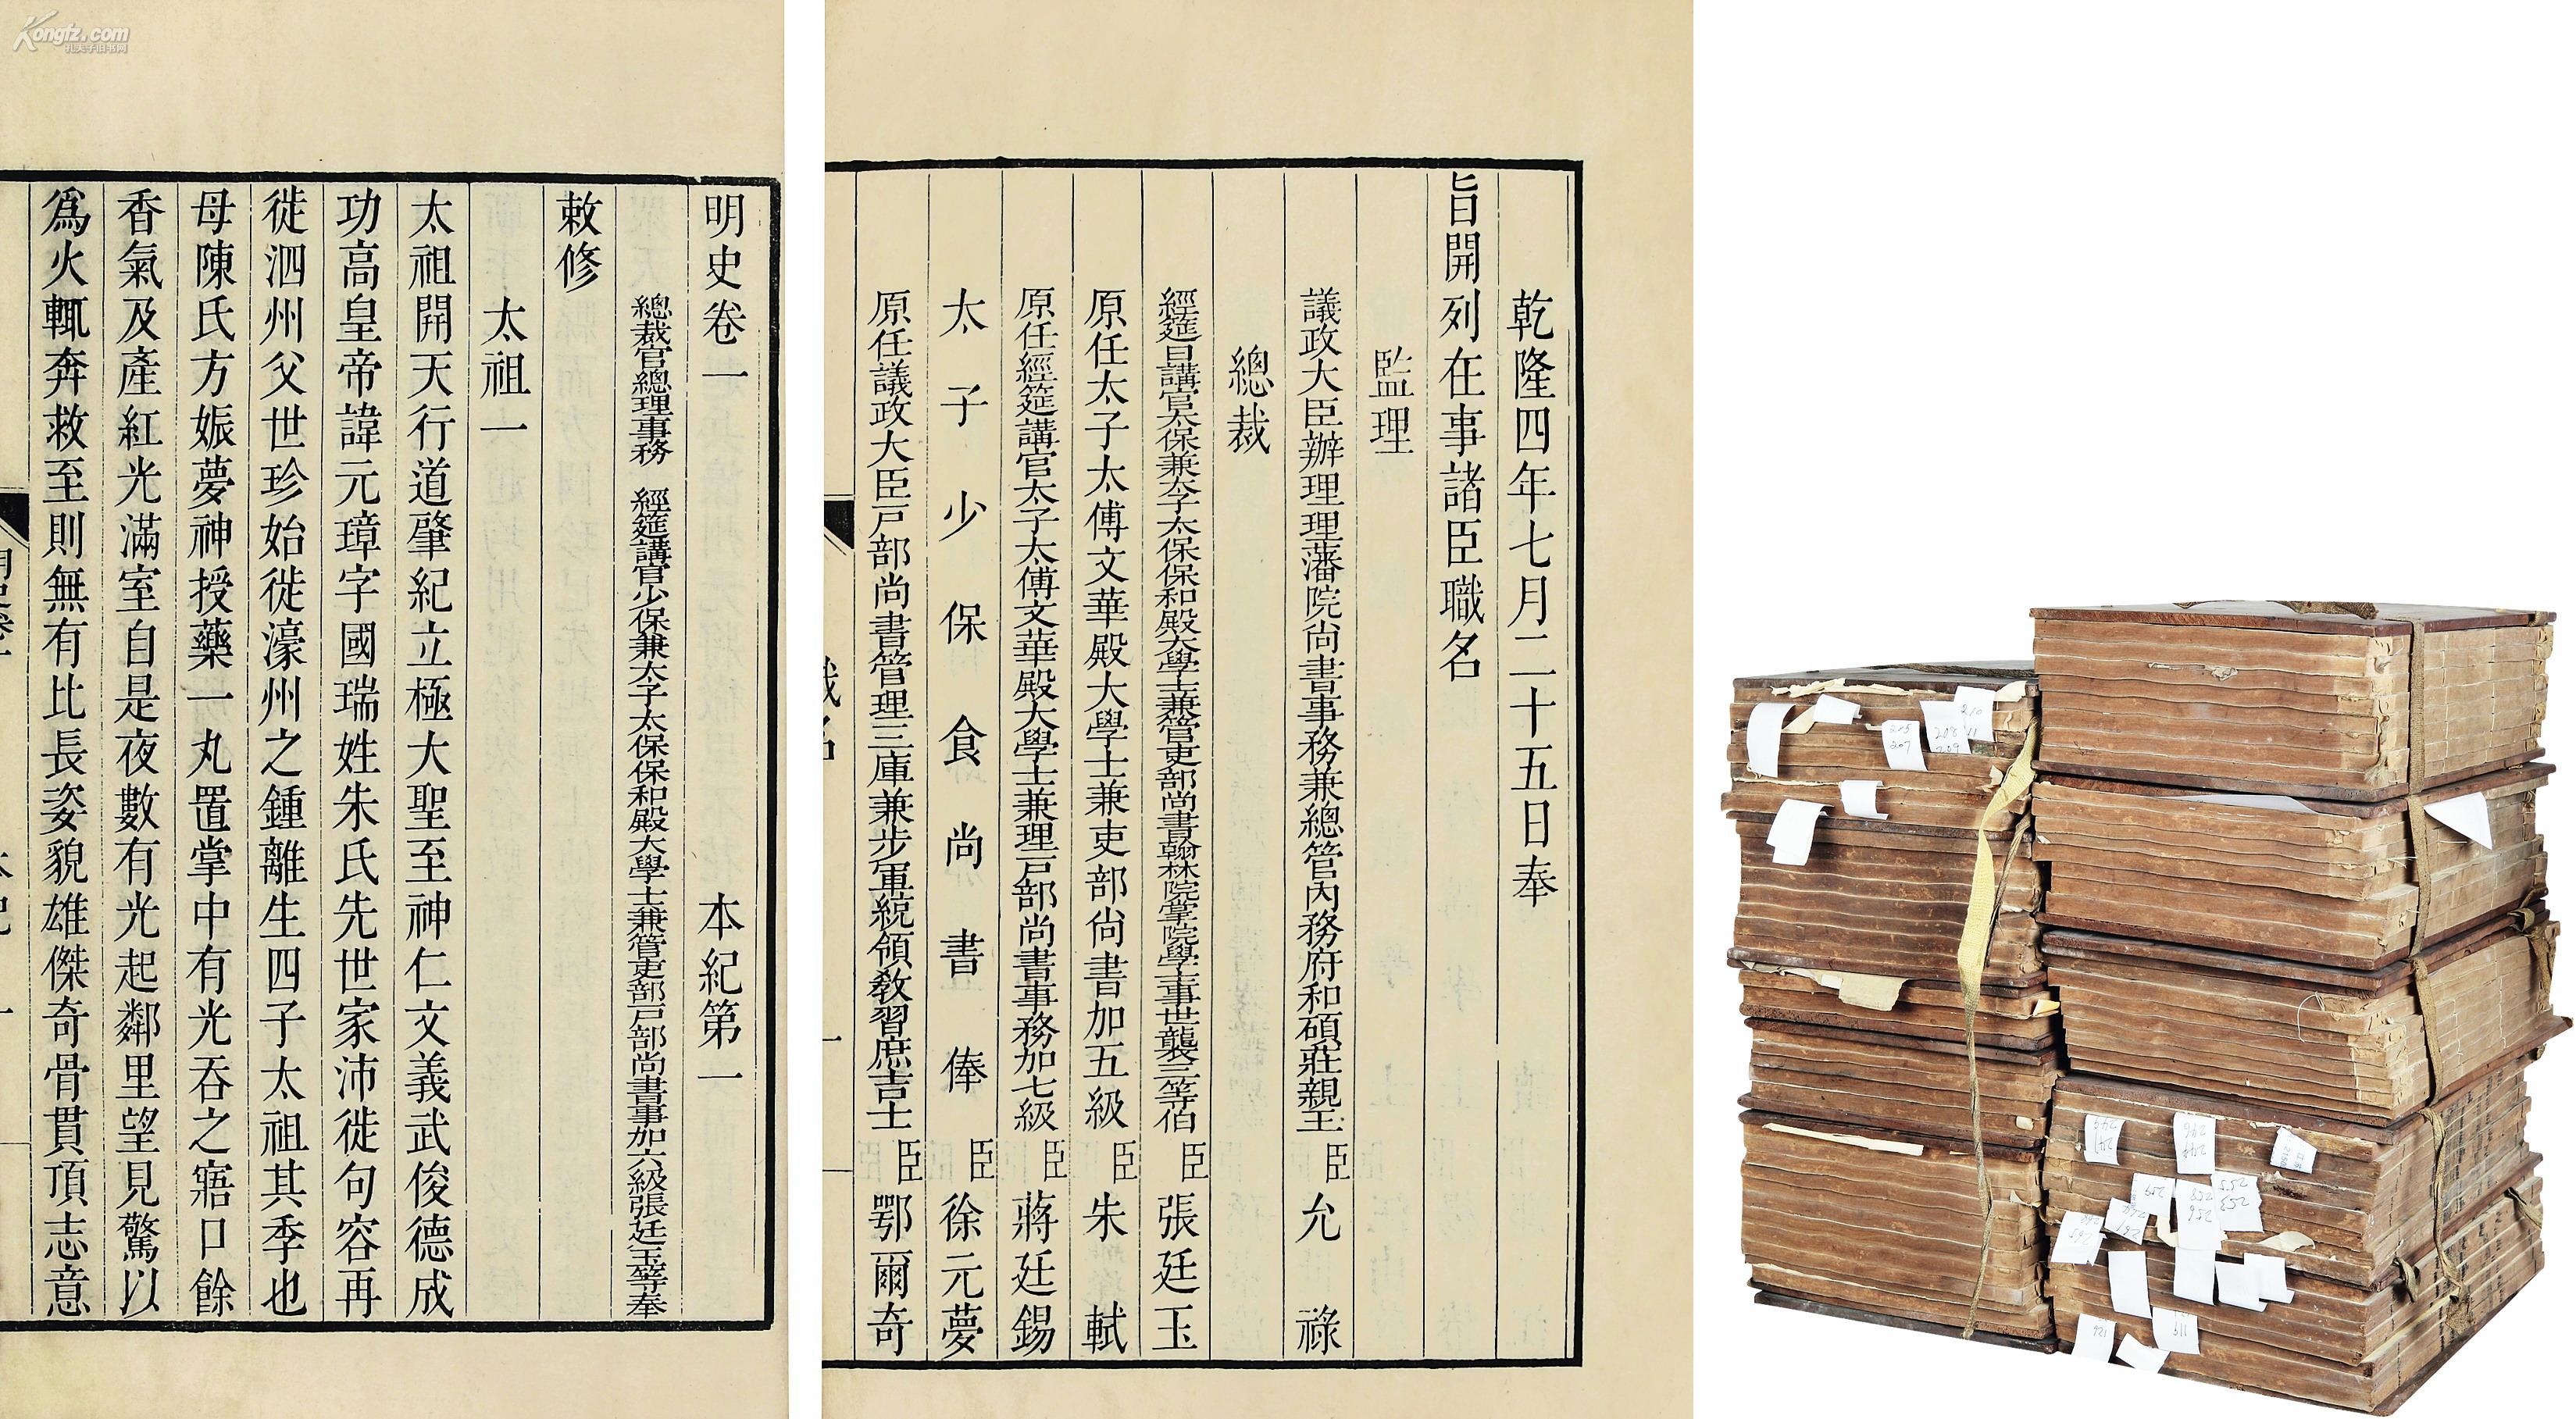 Kongfz.com
孔夫子旧书网
明史卷一 本紀第一
總裁官總理事務 經筵講官少保兼太子太保保和殿大學士兼管吏部戸部尚書事加六級張廷玉等奉
敕修
太祖一
太祖開天行道肇紀立極大聖至神仁文義武俊德成
功高皇帝諱元璋字國瑞姓朱氏先世家沛徙句容再
徙泗州父世珍始徙濠州之鍾離生四子太祖其季也
母陳氏方娠夢神授藥一丸置掌中有光吞之寤口餘
香氣及產紅光滿室自是夜數有光起鄰里望見驚以
爲火輒奔救至則無有比長姿貌雄傑奇骨貫頂志意
乾隆四年七月二十五日奉
旨開列在事諸臣職名
監理
議政大臣辦理理藩院尚書事務兼總管內務府和碩莊親王 臣 允祿
總裁
經筵日講官太保兼太子太保保和殿大學士兼管吏部尚書翰林院掌院學士事世襲三等伯 臣 張廷玉
原任太子太傅文華殿大學士兼吏部尚書加五級 臣 朱軾
原任經筵講官太子太傅文華殿大學士兼理戸部尚書事務加七級 臣 蔣廷錫
太子少保食尚書俸 臣 徐元夢
原任議政大臣戸部尚書管理三庫兼步軍統領教習庶吉士 臣 鄂爾奇
職名 一
210
205
207
208
211
209